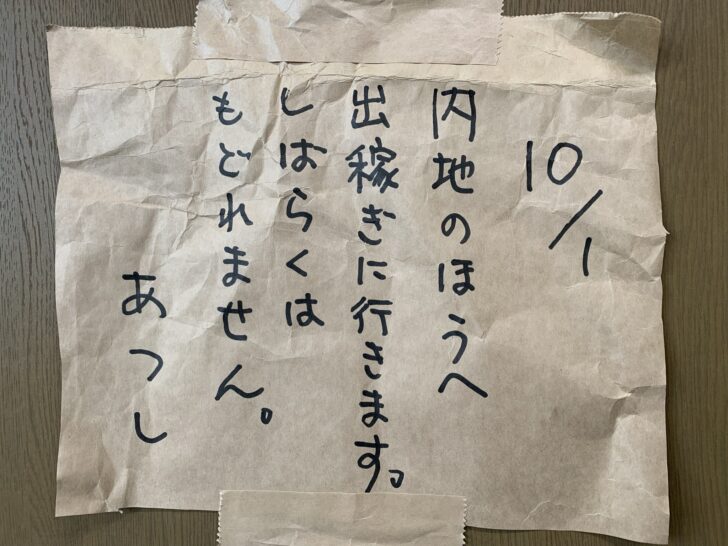 10/1
内地のほうへ
出稼ぎに行きます。
しばらくは
もどれません。
あつし